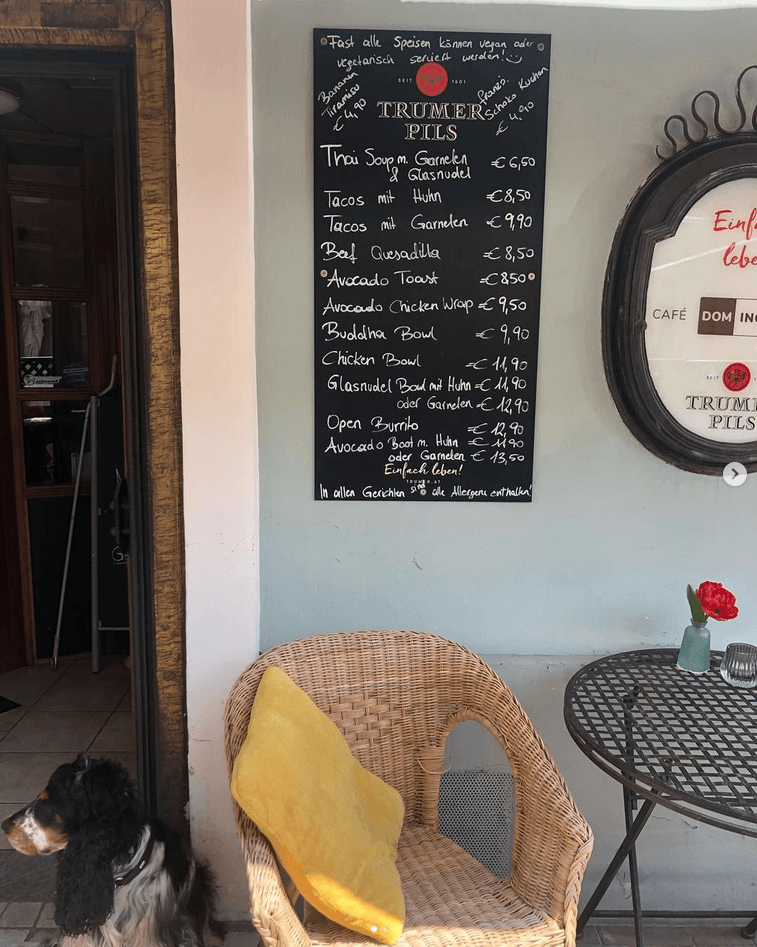 Fast alle Speisen können vegan oder
vegetarisch serviert werden!
SEIT 1601
Bananen
Tiramisu
€ 4,90
TRUMER
PILS
Franzö.
Schoko Kuchen
€ 4,90
Thai Soup m. Garnelen
& Glasnudel € 6,50
Tacos mit Huhn € 8,50
Tacos mit Garnelen € 9,90
Beef Quesadilla € 8,50
Avocado Toast € 8,50
Avocado Chicken Wrap € 9,50
Buddha Bowl € 9,90
Chicken Bowl € 11,90
Glasnudel Bowl mit Huhn € 11,90
oder Garnelen € 12,90
Open Burrito € 12,90
Avocado Boot m. Huhn € 11,90
oder Garnelen € 13,50
Einfach leben!
TRUMER.AT
In allen Gerichten sind alle Allergene enthalten!
Einf
lebe
CAFÉ DOM INC
SEIT
TRUME
PILS